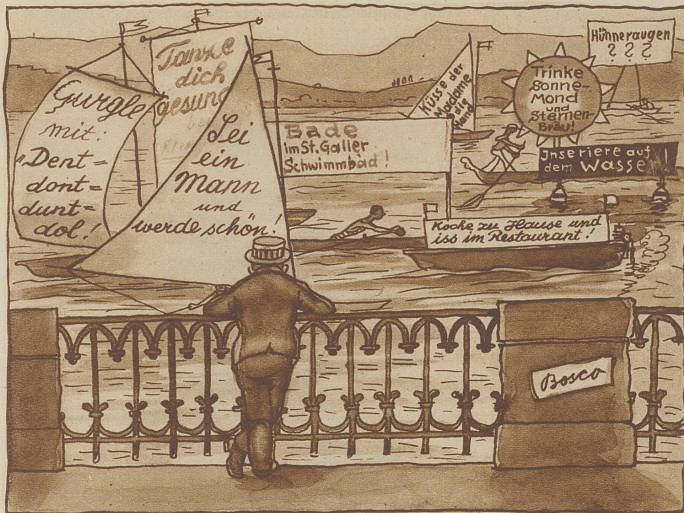 Gurgle
mit:
"Dent=
dont=
dunt=
dol!
Tanze
dich
gesund
Lei
ein
Mann
und
werde schön!
Bade
im St. Galler
Schwimmbad!
Küsse der
Madame
die
Trinke
Sonne-
Mond
und
Sternen-
Bräu!
Hühneraugen
? ? ?
Inseriere auf
dem Wasser!
Koche zu Hause und
iss im Restaurant!
Bosco